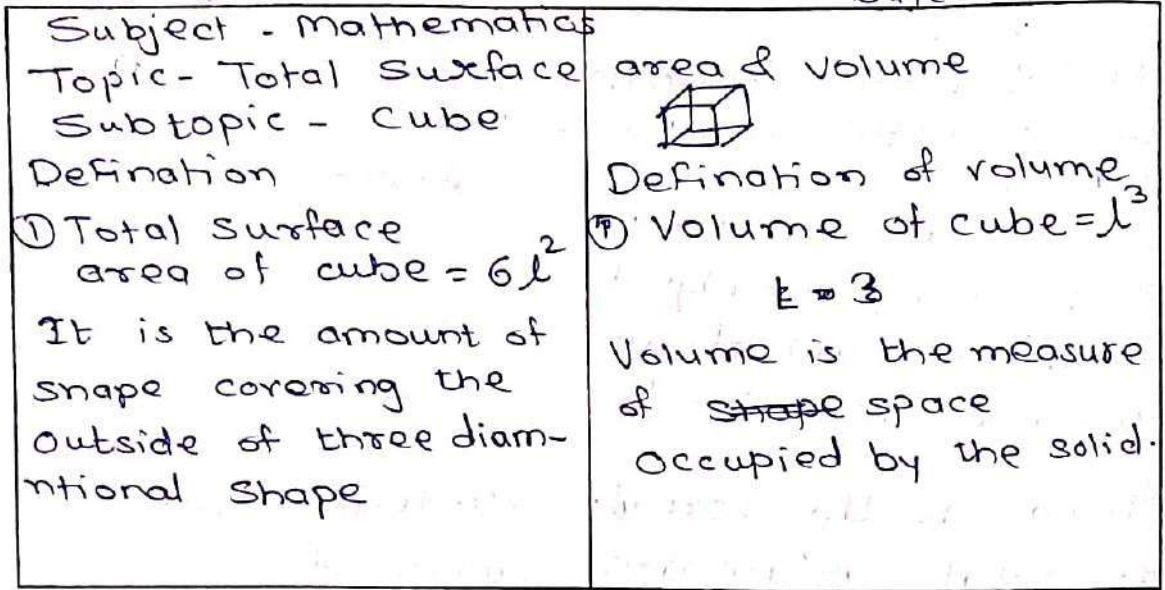 Subject - Mathematics
Topic - Total Surface area & volume
Subtopic - Cube
Defination
① Total Surface
area of cube = 6l²
It is the amount of
snape covering the
outside of three diam-
ntional Shape
Defination of volume
① Volume of cube = l³
Volume is the measure
of shape space
occupied by the solid.